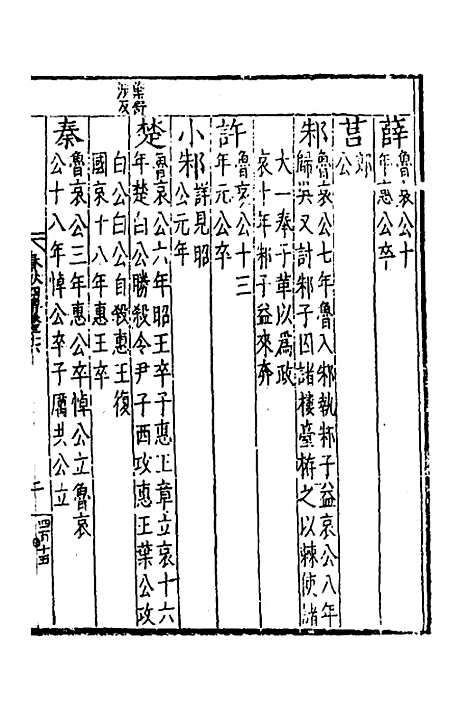 薛魯哀公十
年惠公卒
莒郊
公
邾魯哀公七年魯入邾執邾子益哀公八年
歸吳又討邾子囚諸樓臺栫之以棘使諸
大一奉子革以爲政
哀十年邾子益來奔
許魯哀公十三
年元公卒
小邾詳見昭
公元年
楚魯哀公六年昭王卒子惠王章立哀十六
年楚白公勝殺令尹子西攻惠王葉公攻
葉舒
涉反
白公白公自殺惠王復
國哀十八年惠王卒
秦魯哀公三年惠公卒悼公立魯哀
公十八年悼公卒子厲共公立
二
四百十五